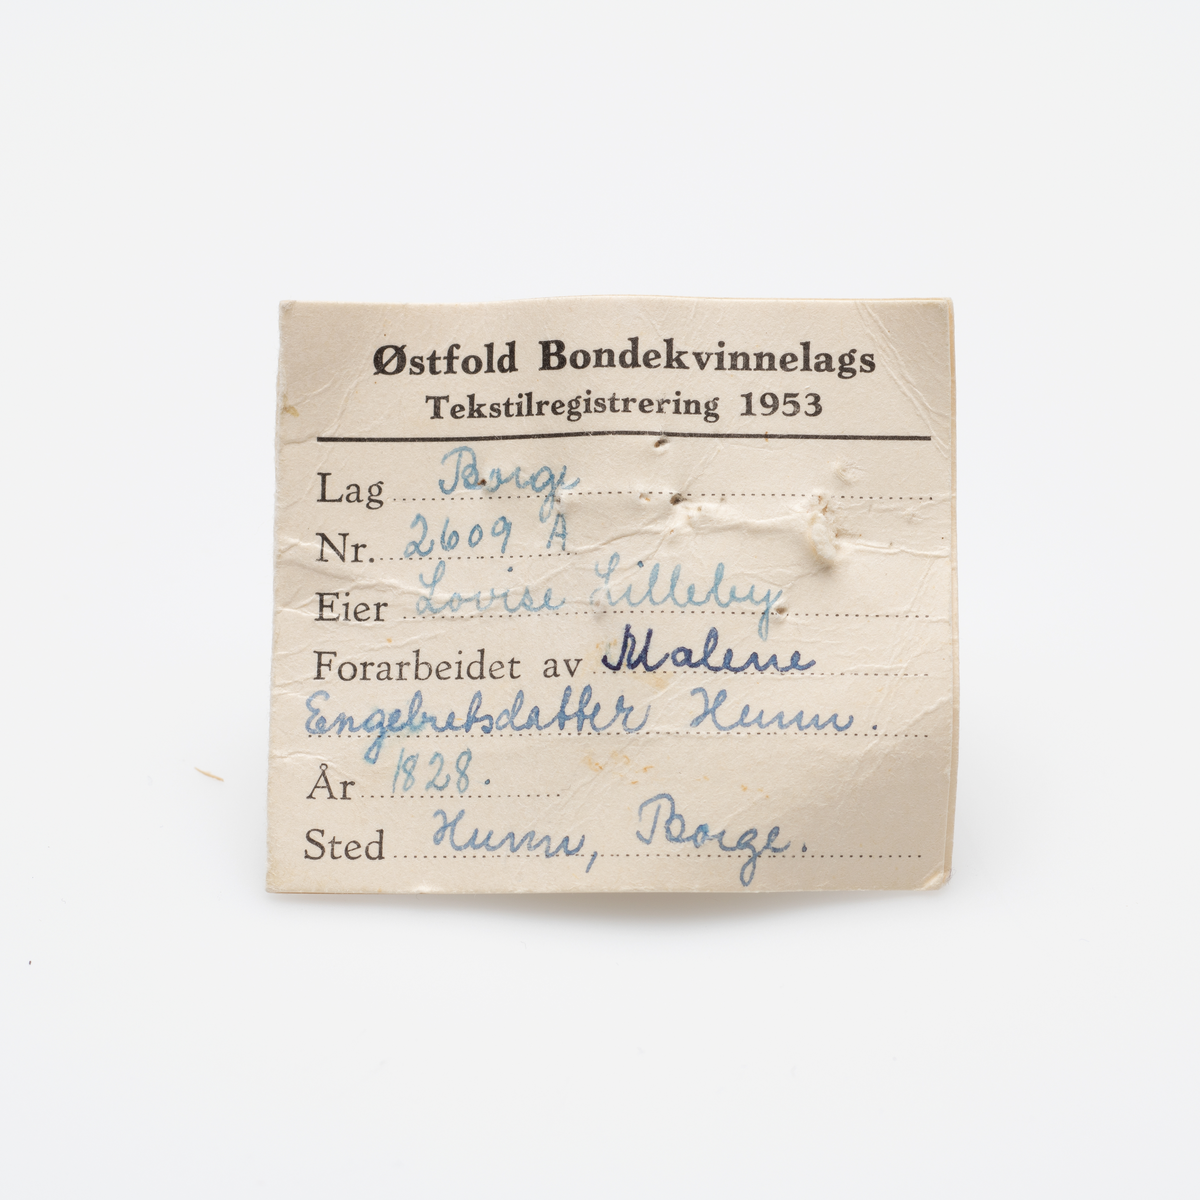 Østfold Bondekvinnelags
Tekstilregistrering 1953
Lag Borge
Nr. 2609 A
Eier Lovise Lilleby
Forarbeidet av Malene
Engebretsdatter Hunn.
År 1828.
Sted Hunn, Borge.